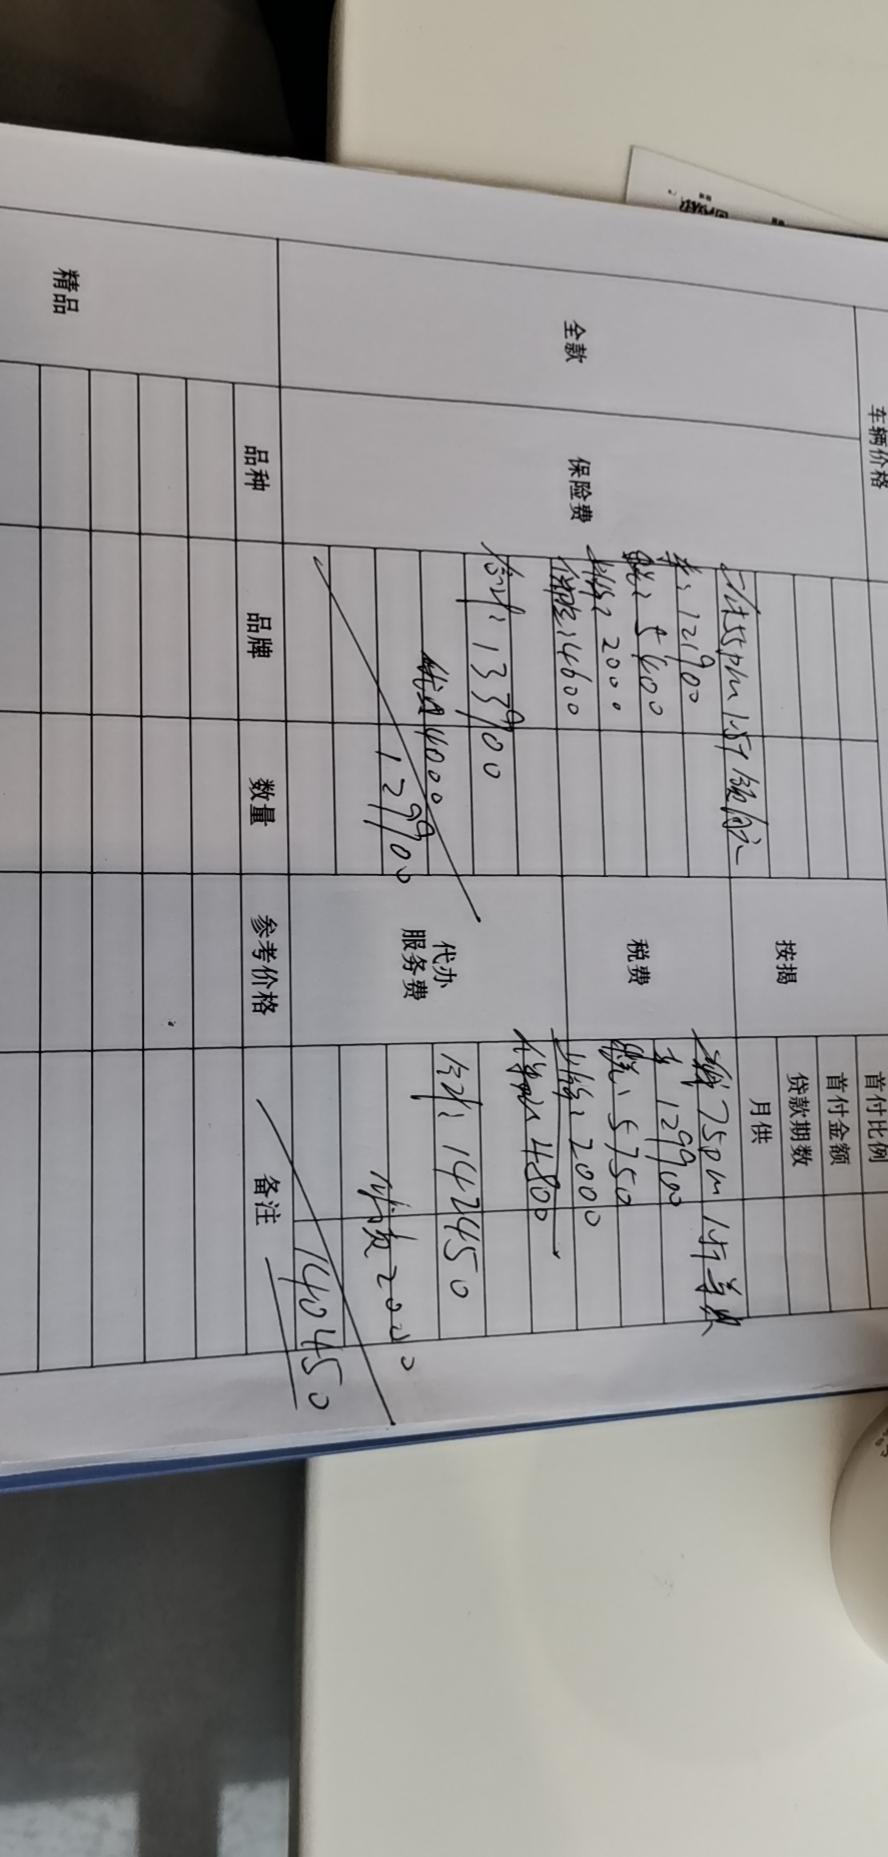 车辆价格
全款
保险费
按揭
首付比例
首付金额
贷款期数
月供
税费
代办
服务费
车:121900
税:5400
上牌:2000
保险:4600
合计:133900
优惠4000
129900
75pm 1.5T
车 129900
税:5750
上牌:2000
保险:4800
合计:142450
优惠2000
140450
精品
品种
品牌
数量
参考价格
备注